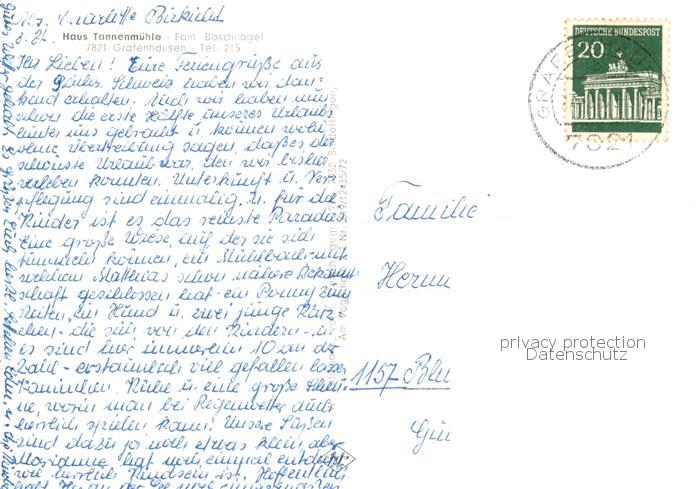 Haus Tannenmühle - Fam. Baschnagel
7821 Grafenhausen - Tel. 215
Ihr Lieben! Eure Feriengrüße aus
der Sächs. Schweiz haben wir dan-
kend erhalten. Auch wir haben nun
schon die erste Hälfte unseres Urlaubs
hinter uns gebracht u. können wohl
ohne Übertreibung sagen, daß es der
schönste Urlaub war, den wir bisher
verleben konnten. Unterkunft u. Ver-
pflegung sind einmalig u. für die
Kinder ist es das reinste Paradies.
Eine große Wiese, auf der sie sich
tummeln können, ein Mühlbach mit
welchem Matthias schon nähere Bekannt-
schaft geschlossen hat - ein Ponny zum
Reiten, ein Hund u. zwei junge Kätz-
chen - die sich von den Kindern - u.
es sind hier immerhin 10 an der
Zahl - erstaunlich viel gefallen lassen
Kaninchen, Kühe u. eine große Scheu-
ne, worin man bei Regenwetter auch
herrlich spielen kann. Unsere Füßen
sind dazu ja noch etwas klein aber
Marianne hat noch einmal entdeckt
wie herrlich Kindsein ist. Hoffentlich
DEUTSCHE BUNDESPOST
20
7821
Familie
Herm
1157 Blu
privacy protection
Datenschutz